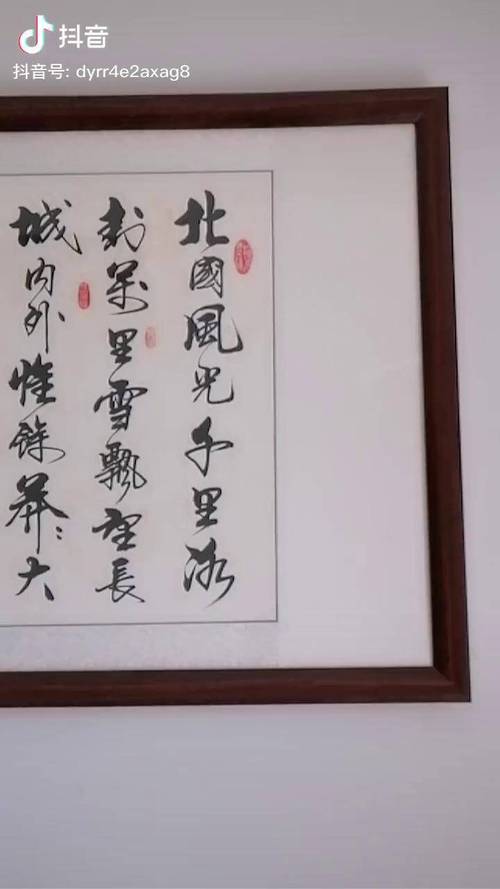 抖音
抖音号: dyrr4e2axag8
北國風光千里冰
封萬里雪飄望長
城內外惟餘莽〻大